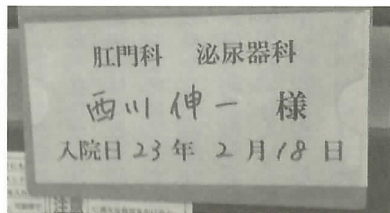 肛門科　泌尿器科
西川伸一 様
入院日 23 年 2 月 18 日
注